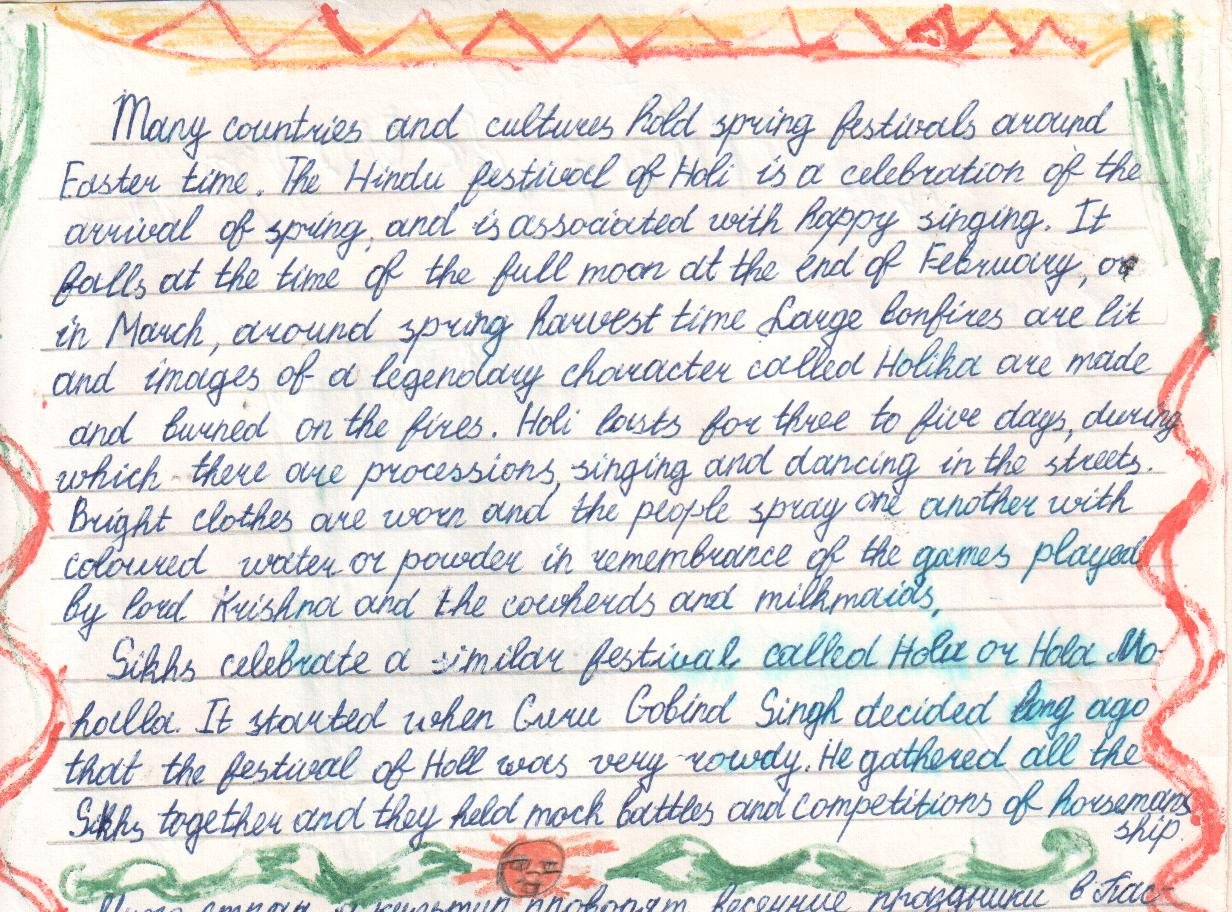 Many countries and cultures hold spring festivals around
Easter time. The Hindu festival of Holi is a celebration of the
arrival of spring, and is associated with happy singing. It
falls at the time of the full moon at the end of February, or
in March, around spring harvest time Large bonfires are lit
and images of a legendary character called Holika are made
and burned on the fires. Holi lasts for three to five days, during
which there are processions, singing and dancing in the streets.
Bright clothes are worn and the people spray one another with
coloured water or powder in remembrance of the games played
by lord Krishna and the cowherds and milkmaids,
Sikhs celebrate a similar festival, called Hola or Hola Mo-
halla. It started when Guru Gobind Singh decided long ago
that the festival of Holl was very rowdy. He gathered all the
Sikhs together and they held mock battles and competitions of horsemans
ship.
Много стран и культур проводят весенние праздники в Пас-